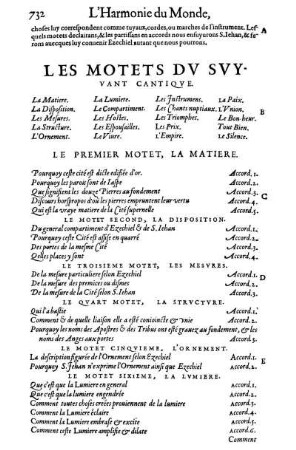 732 L'Harmonie du Monde,
choses luy correspondent comme tuyaux, cordes, ou marches de l'instrument. Les-
quels motets declarans, & les partissans en accords nous ensuyvrons S. Iehan, & fe- A
rons avecques luy convenir Ezechiel autant que nous pourrons.
LES MOTETS DV SVY-
VANT CANTIQVE.
La Matiere. La Lumiere. Les Instrumens. La Paix.
La Disposition. Le Compartiment. Les Chants nuptiaux. L'Vnion. B
Les Mesures. Les Hostes. Les Triomphes. Le Bon-heur.
La Structure. Les Espousailles. Les Prix. Tout Bien.
L'Ornement. Le Vivre. L'Empire. Le Silence.
LE PREMIER MOTET, LA MATIERE.
Pourquoy ceste cité est dicte edifiée d'or. Accord.1.
Pourquoy les parois sont de Iaspe Accord.2.
Que signifient les douze Pierres au fondement Accord.3. C
Discours hors propos d'où les pierres empruntent leur vertu Accord.4.
Qui est la vraye matiere de la Cité supernelle Accord.5.
LE MOTET SECOND, LA DISPOSITION.
Du general compartiment d'Ezechiel & de S. Iehan Accord.1.
Pourquoy ceste Cité est assise en quarré Accord.2.
Des portes de la mesme Cité Accord.3.
Quelles places y sont Accord.4.
LE TROISIEME MOTET, LES MESVRES.
De la mesure particuliere selon Ezechiel Accord.1. D
De la mesure des premices ou disines Accord.2.
De la mesure de la Cité selon S. Iehan Accord.3.
LE QVART MOTET, LA STRVCTVRE.
Qui l'a bastie Accord.1.
Comment & de quelle liaison elle a esté conioincte & vnie Accord.2.
Pourquoy les noms des Apostres & des Tribus ont esté gravez au fondement, & les
noms des Anges aux portes Accord.3.
LE MOTET CINQVIEME, L'ORNEMENT.
La description figurée de l'Ornement selon Ezechiel Accord.1. E
Pourquoy S. Iehan n'exprime l'Ornement ainsi que Ezechiel Accord.2.
LE MOTET SIXIEME, LA LVMIERE.
Que c'est que la Lumiere en general Accord.1.
Que c'est que la lumiere engendrée Accord.2.
Comment toutes choses creées proviennent de la lumiere Accord.3.
Comment la Lumiere éclaire Accord.4.
Comment la Lumiere embrase & excite Accord.5.
Comment ceste Lumiere amplifie & dilate Accord.6.
Comment